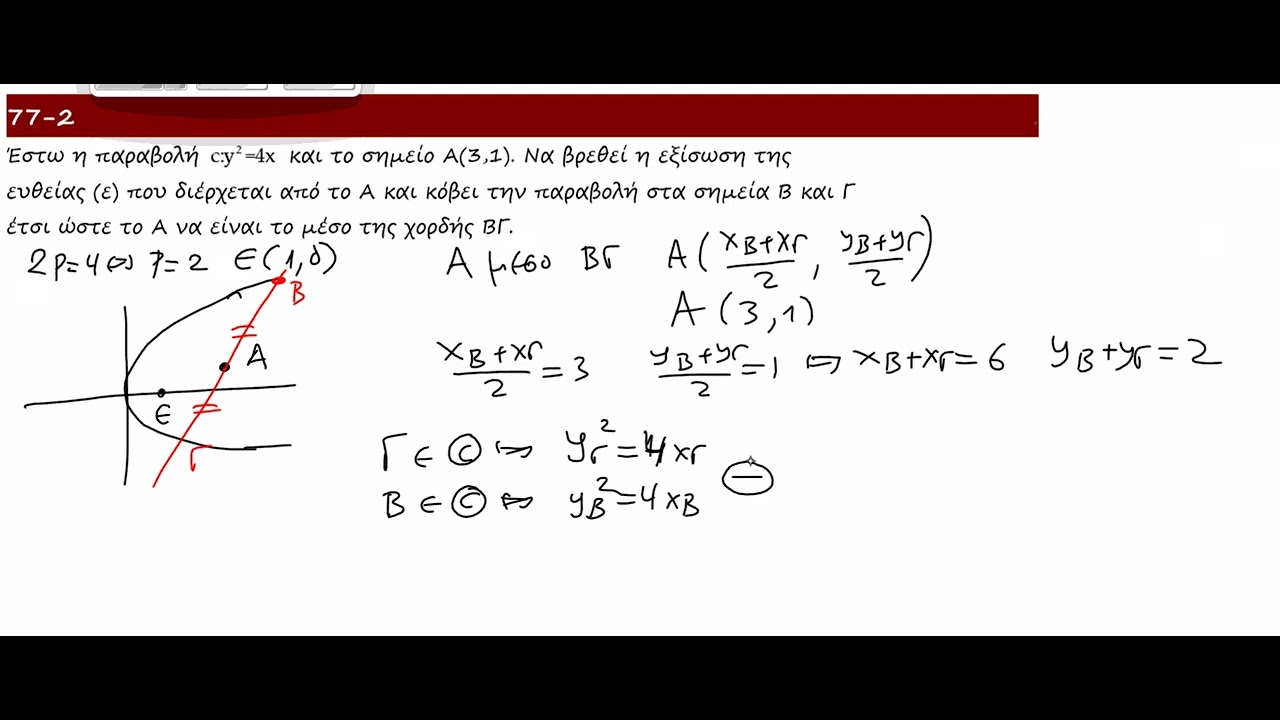 77-2
Έστω η παραβολή c:y²=4x και το σημείο A(3,1). Να βρεθεί η εξίσωση της
ευθείας (ε) που διέρχεται από το A και κόβει την παραβολή στα σημεία B και Γ
έτσι ώστε το A να είναι το μέσο της χορδής ΒΓ.
2p=4⇔ p=2 E(1,0)
A μέσο ΒΓ A((x_B+x_Γ)/2, (y_B+y_Γ)/2)
A(3,1)
(x_B+x_Γ)/2=3 (y_B+y_Γ)/2=1 ⇔ x_B+x_Γ=6 y_B+y_Γ=2
B
A
E
Γ
Γ∈ⓒ⇔ y_Γ²=4x_Γ
B∈ⓒ⇔ y_B²=4x_B
⊖